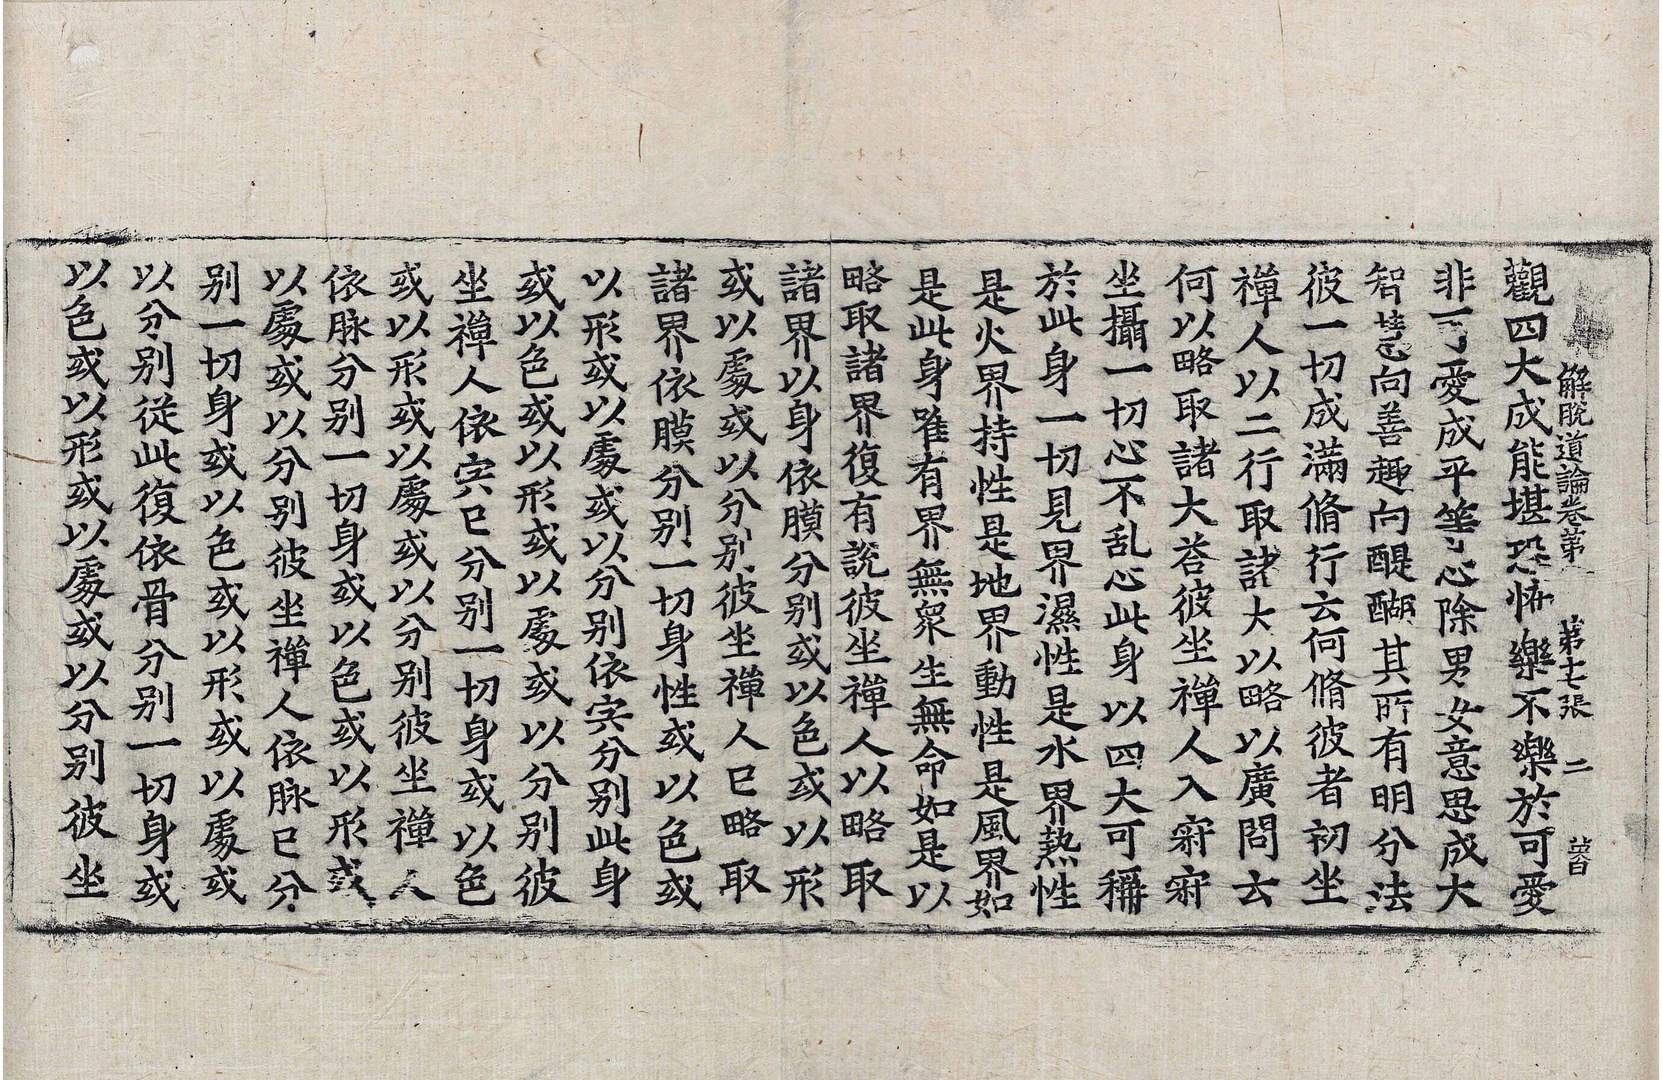 解脫道論卷第 第十七張 二
觀四大成能堪恐怖樂不樂於可愛
非可愛成平等心除男女意思成大
智慧向善趣向醍醐其所有明分法
彼一切成滿脩行云何脩彼者初坐
禪人以二行取諸大以略以廣問云
何以略取諸大荅彼坐禪人入寂寂
坐攝一切心不乱心此身以四大可稱
於此身一切見界濕性是水界熱性
是火界持性是地界動性是風界如
是此身唯有界無衆生無命如是以
略取諸界復有說彼坐禪人以略取
諸界以身依膜分別或以色或以形
或以處或以分別彼坐禪人已略取
諸界依膜分別一切身性或以色或
以形或以處或以分別依宍分別此身
或以色或以形或以處或以分別彼
坐禪人依宍已分別一切身或以色
或以形或以處或以分別彼坐禪人
依脉分別一切身或以色或以形或
以處或以分別彼坐禪人依脉已分
別一切身或以色或以形或以處或
以分別從此復依骨分別一切身或
以色或以形或以處或以分別彼坐